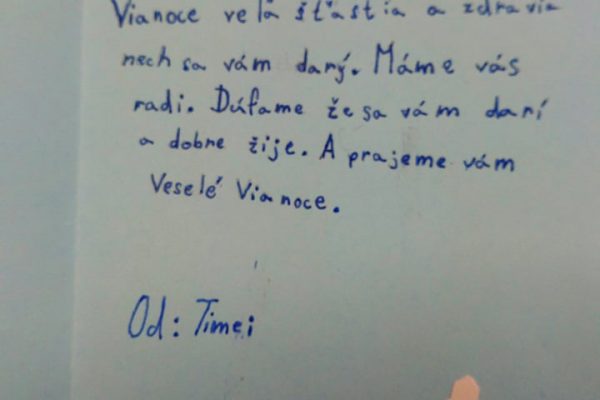 Vianoce veľa šťastia a zdravia
nech sa vám darý. Máme vás
radi. Dúfame že sa vám darí
a dobre žije. A prajeme vám
Veselé Vianoce.
Od: Timei